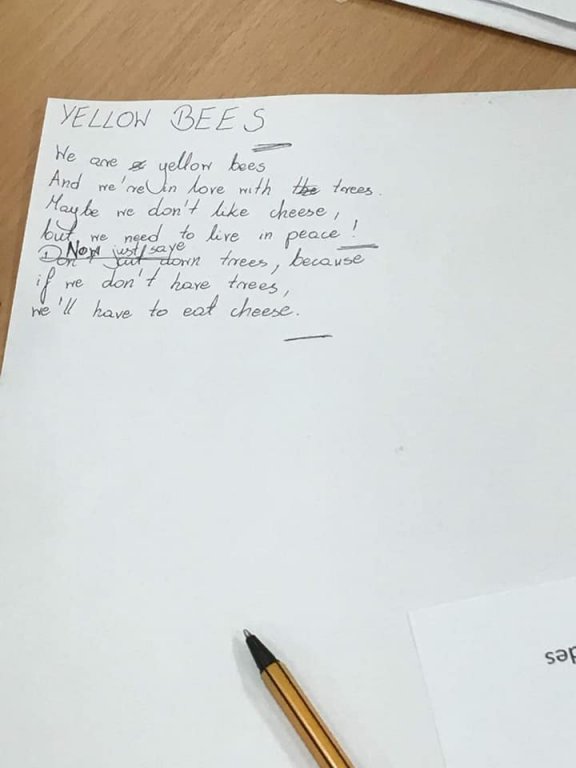 YELLOW BEES
We are yellow bees
And we're in love with the trees.
Maybe we don't like cheese,
but we need to live in peace!
Now just save
Don't cut down trees, because
if we don't have trees,
we'll have to eat cheese.